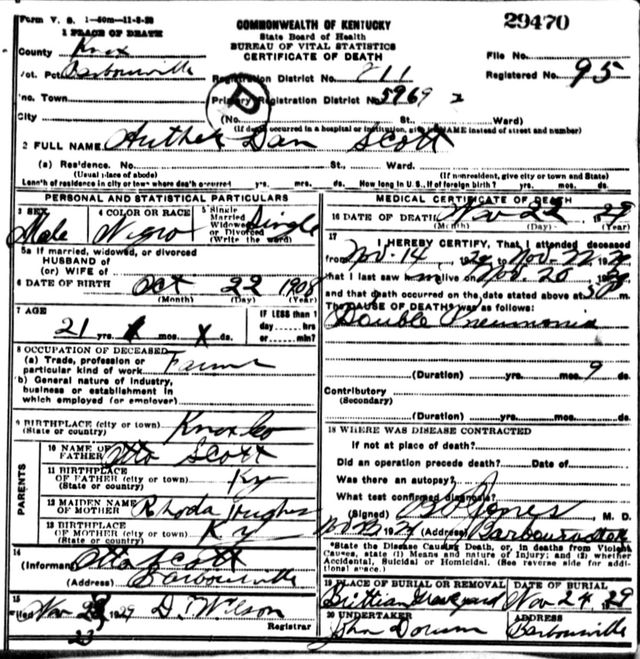 Form V. S. 1-50m-11-8-28
29470
COMMONWEALTH OF KENTUCKY
State Board of Health
BUREAU OF VITAL STATISTICS
CERTIFICATE OF DEATH
1 PLACE OF DEATH
County Knox
File No.
Vot. Pct Barbourville
Registration District No. 211
Registered No. 95
Inc. Town
Primary Registration District No. 5969 2
City
(No. St., Ward)
(If death occurred in a hospital or institution, give its NAME instead of street and number)
2 FULL NAME Dan Scott
(a) Residence. No. St., Ward.
(Usual place of abode) (If nonresident, give city or town and State)
Length of residence in city or town where death occurred yrs. mos. ds. How long in U. S., if of foreign birth? yrs. mos. ds.
PERSONAL AND STATISTICAL PARTICULARS
3 SEX Male
4 COLOR OR RACE Negro
5 Single Married Widowed or Divorced (Write the word) Single
5a If married, widowed, or divorced
HUSBAND of
(or) WIFE of
6 DATE OF BIRTH Oct 22 1908
(Month) (Day) (Year)
7 AGE
21 yrs. X mos. X ds.
IF LESS than 1 day hrs or min?
8 OCCUPATION OF DECEASED
(a) Trade, profession or particular kind of work Farmer
b) General nature of Industry, business or establishment in which employed (or employer)
9 BIRTHPLACE (city or town) Knox Co
(State or country)
PARENTS
10 NAME OF FATHER Otto Scott
11 BIRTHPLACE OF FATHER (city or town) Ky
(State or country)
12 MAIDEN NAME OF MOTHER Rhoda Hughes
13 BIRTHPLACE OF MOTHER (city or town) Ky
(State or country)
14 (Informant Otto Scott
(Address) Barbourville
15
Filed Nov 23 1929 D. Wilson
Registrar
23
MEDICAL CERTIFICATE OF DEATH
16 DATE OF DEATH Nov 22 1929
(Month) (Day) (Year)
17
I HEREBY CERTIFY, That I attended deceased
from Nov. 14, 1929 to Nov. 22, 29
that I last saw him alive on Nov. 20 29
and that death occurred on the date stated above at m.
The CAUSE OF DEATH* was as follows:
Double Pneumonia
(Duration) yrs. mos. 9 ds.
Contributory
(Secondary)
(Duration) yrs. mos. ds.
18 WHERE WAS DISEASE CONTRACTED
If not at place of death?
Did an operation precede death? Date of
Was there an autopsy?
What test confirmed diagnosis?
(Signed) Jones M. D.
19 (Address) Barbourville
*State the Disease Causing Death, or, in deaths from Violent Causes, state (1) Means and nature of Injury; and (2) whether Accidental, Suicidal or Homicidal. (See reverse side for additional space.)
19 PLACE OF BURIAL OR REMOVAL
Brittian Graveyard
DATE OF BURIAL
Nov 24 1929
20 UNDERTAKER
John
ADDRESS
Barbourville